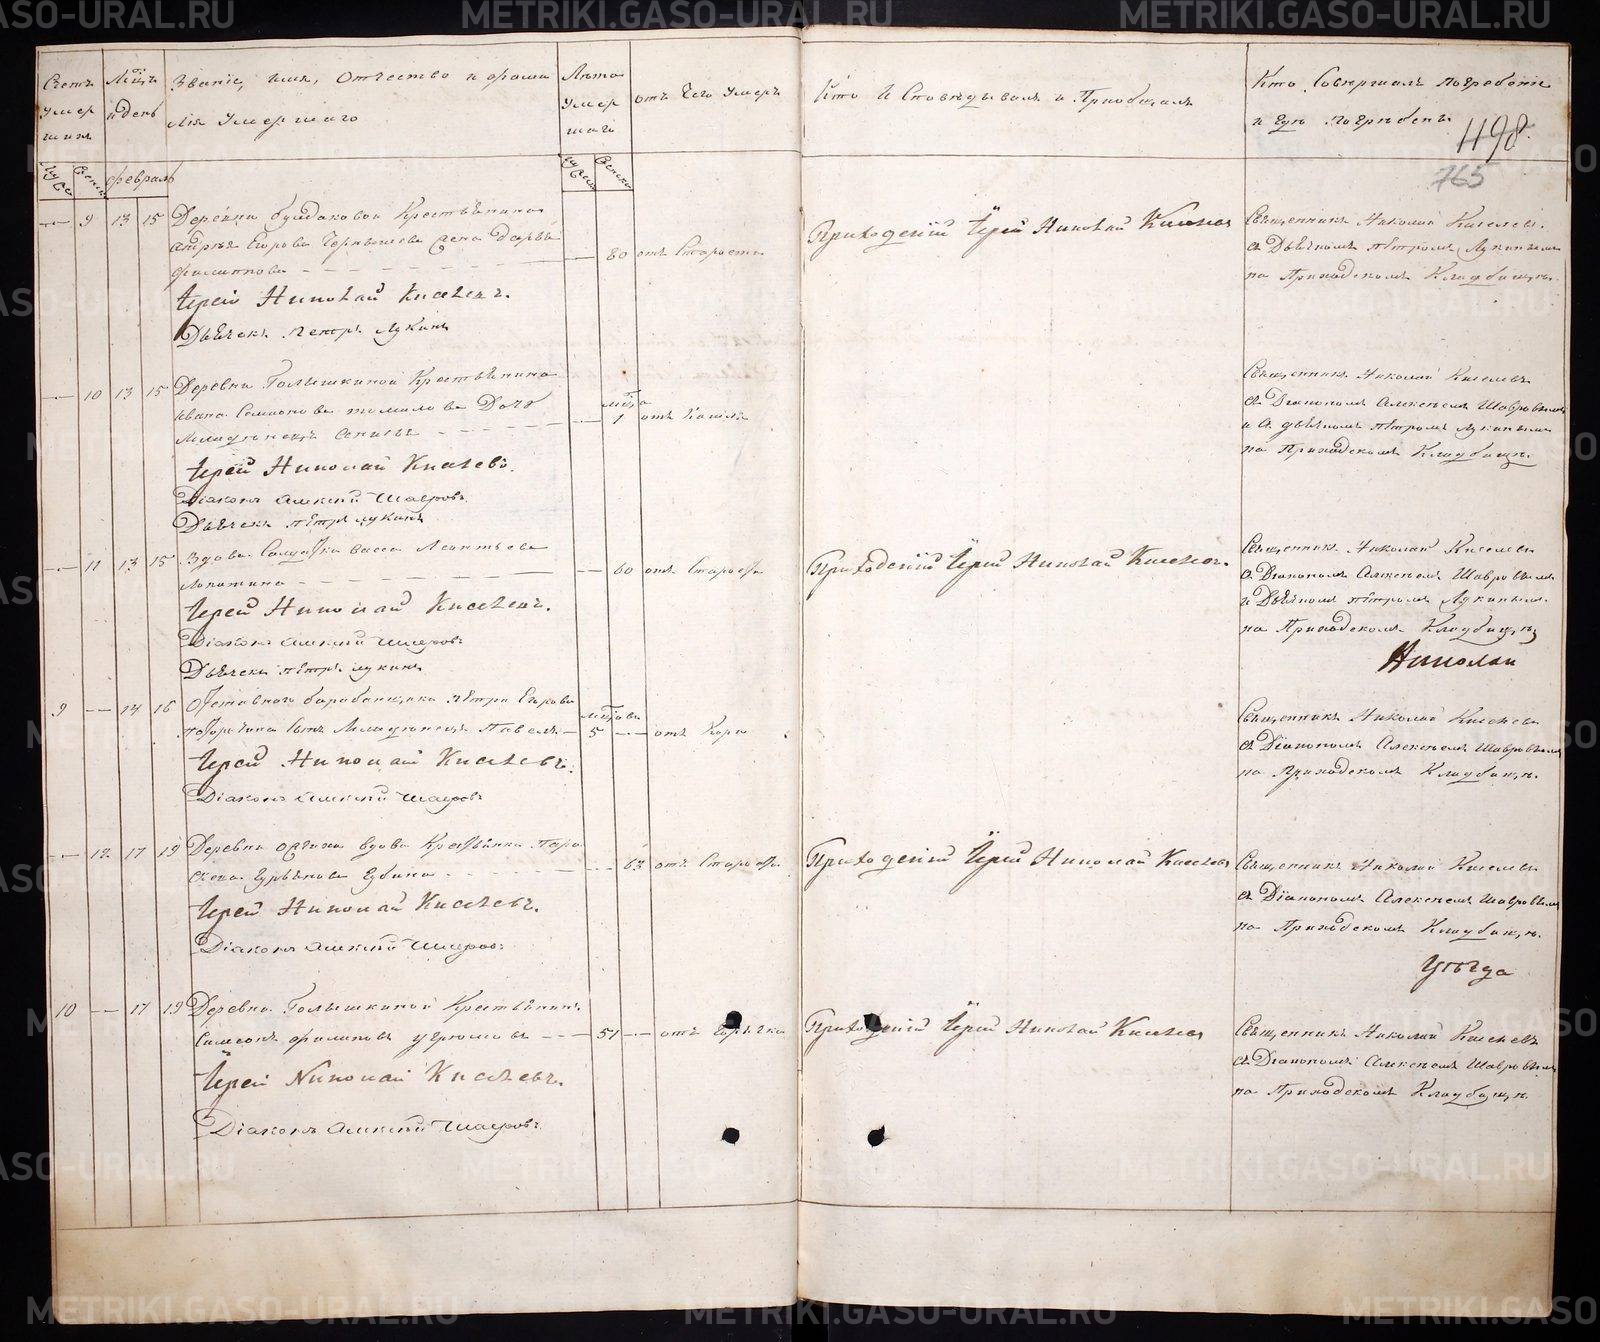 Счетъ умершихъ
Мѣсяцъ и день
Званіе, имя, отчество и фамилія умершаго
Лѣта умершаго
отъ чего умеръ
Кто Исповѣдывалъ и Приобщалъ
Кто Совершалъ погребеніе
и гдѣ погребенъ
498.
765
Муска
Женска
февраль
Муска
Женска
— 9 13 15 Деревни Булдаковой Крестьянина
Андрея Егорова Чернышева жена Дарья
Филипова — 80 отъ Старости
Іерей Николай Киселевъ.
Дьячекъ Петръ Лукинъ
Приходскій Іерей Николай Киселевъ
Священникъ Николай Киселевъ
съ Дьячкомъ Петромъ Лукинымъ
на Приходскомъ Кладбищѣ.
— 10 13 15 Деревни Голышкиной Крестьянина
Ивана Семионова Томилова Дочь
Младенецъ — мѣсяца 1 отъ Кашля
Іерей Николай Киселевъ.
Діаконъ Алексій Шавровъ
Дьячекъ Петръ Лукинъ
Священникъ Николай Киселевъ
съ Діакономъ Алексѣемъ Шавровымъ
и съ дьячкомъ Петромъ Лукинымъ
на Приходскомъ Кладбищѣ.
— 11 13 15 Вдова Солдатка Васса Леонтьева
Лопатина — 60 отъ Старости
Іерей Николай Киселевъ.
Діаконъ Алексій Шавровъ
Дьячекъ Петръ Лукинъ
Приходскій Іерей Николай Киселевъ.
Священникъ Николай Киселевъ
съ Діакономъ Алексѣемъ Шавровымъ
и Дьячкомъ Петромъ Лукинымъ
на Приходскомъ Кладбищѣ
Николай
9 — 14 16 Отставнаго барабанщика Петра Егорова
сынъ Младенецъ Павелъ — мѣсяцовъ 5 — отъ Кори
Іерей Николай Киселевъ.
Діаконъ Алексій Шавровъ
Священникъ Николай Киселевъ
съ Діакономъ Алексѣемъ Шавровымъ
на Приходскомъ Кладбищѣ.
— 12 17 19 Деревни вдова Крестьянка Пара
скева Гурьянова Губина — 63 отъ Старости
Іерей Николай Киселевъ.
Діаконъ Алексій Шавровъ
Приходскій Іерей Николай Киселевъ
Священникъ Николай Киселевъ
съ Діакономъ Алексѣемъ Шавровымъ
на Приходскомъ Кладбищѣ.
10 — 17 19 Деревни Голышкиной Крестьянинъ
Симеонъ Филиповъ Угрюмовъ — 51 — отъ Горячки
Іерей Николай Киселевъ.
Діаконъ Алексій Шавровъ
Приходскій Іерей Николай Киселевъ
Священникъ Николай Киселевъ
съ Діакономъ Алексѣемъ Шавровымъ
на Приходскомъ Кладбищѣ.
METRIKI.GASO-URAL.RU